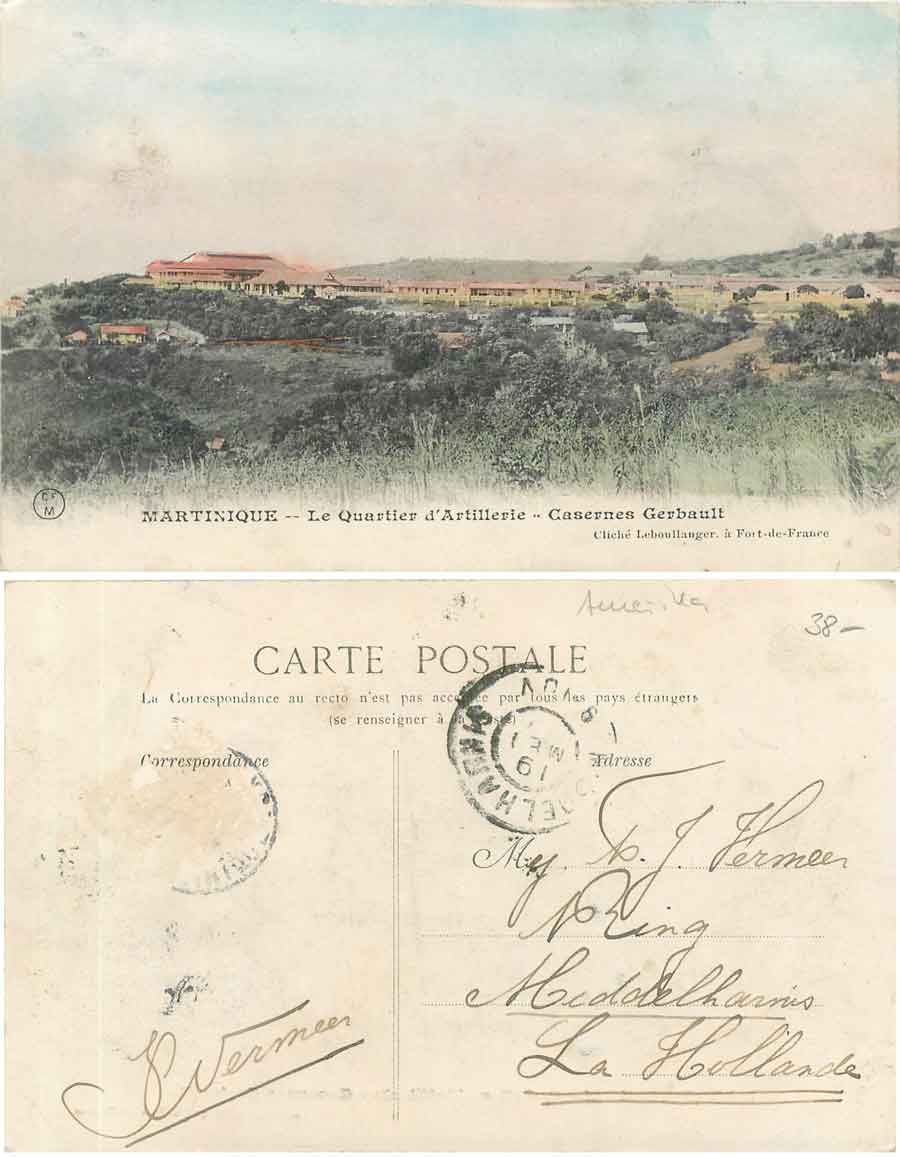 CF
M
MARTINIQUE -- Le Quartier d'Artillerie -- Casernes Gerbault
Cliché Leboullanger, à Fort-de-France
38-
CARTE POSTALE
La Correspondance au recto n'est pas acceptée par tous les pays étrangers
(se renseigner à la poste)
Correspondance
Adresse
DELHARNIS
19
ME
J. Vermeer
Ring
Middelharnis
La Hollande
Vermeer